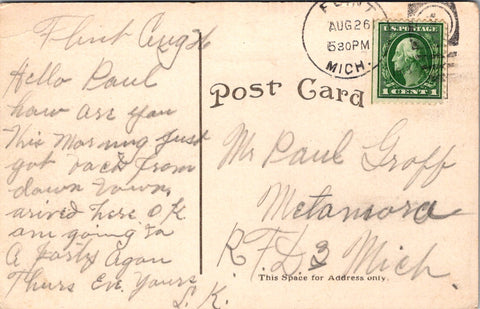 Flint Aug 26
Hello Paul
how are you
this Morning just
got back from
down town,
arived here O K
am going to
a party agan
Thurs Eve. Yours
L. K.
FLINT
AUG 26
530PM
MICH.
U.S. POSTAGE
1 CENT 1
Post Card
Mr Paul Groff
Metamora
R.F.D. 3 Mich.
This Space for Address only.